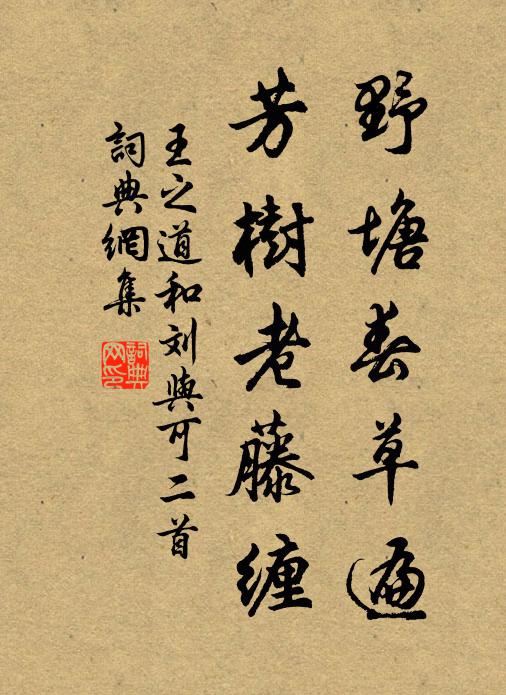 野塘春草遍
芳樹老藤纏
王之道和刘與可二首
詞典網集
詞典
网印